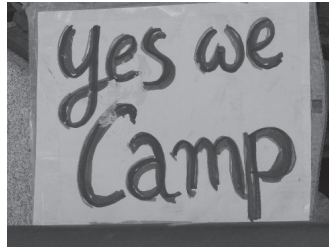 yes we
Camp